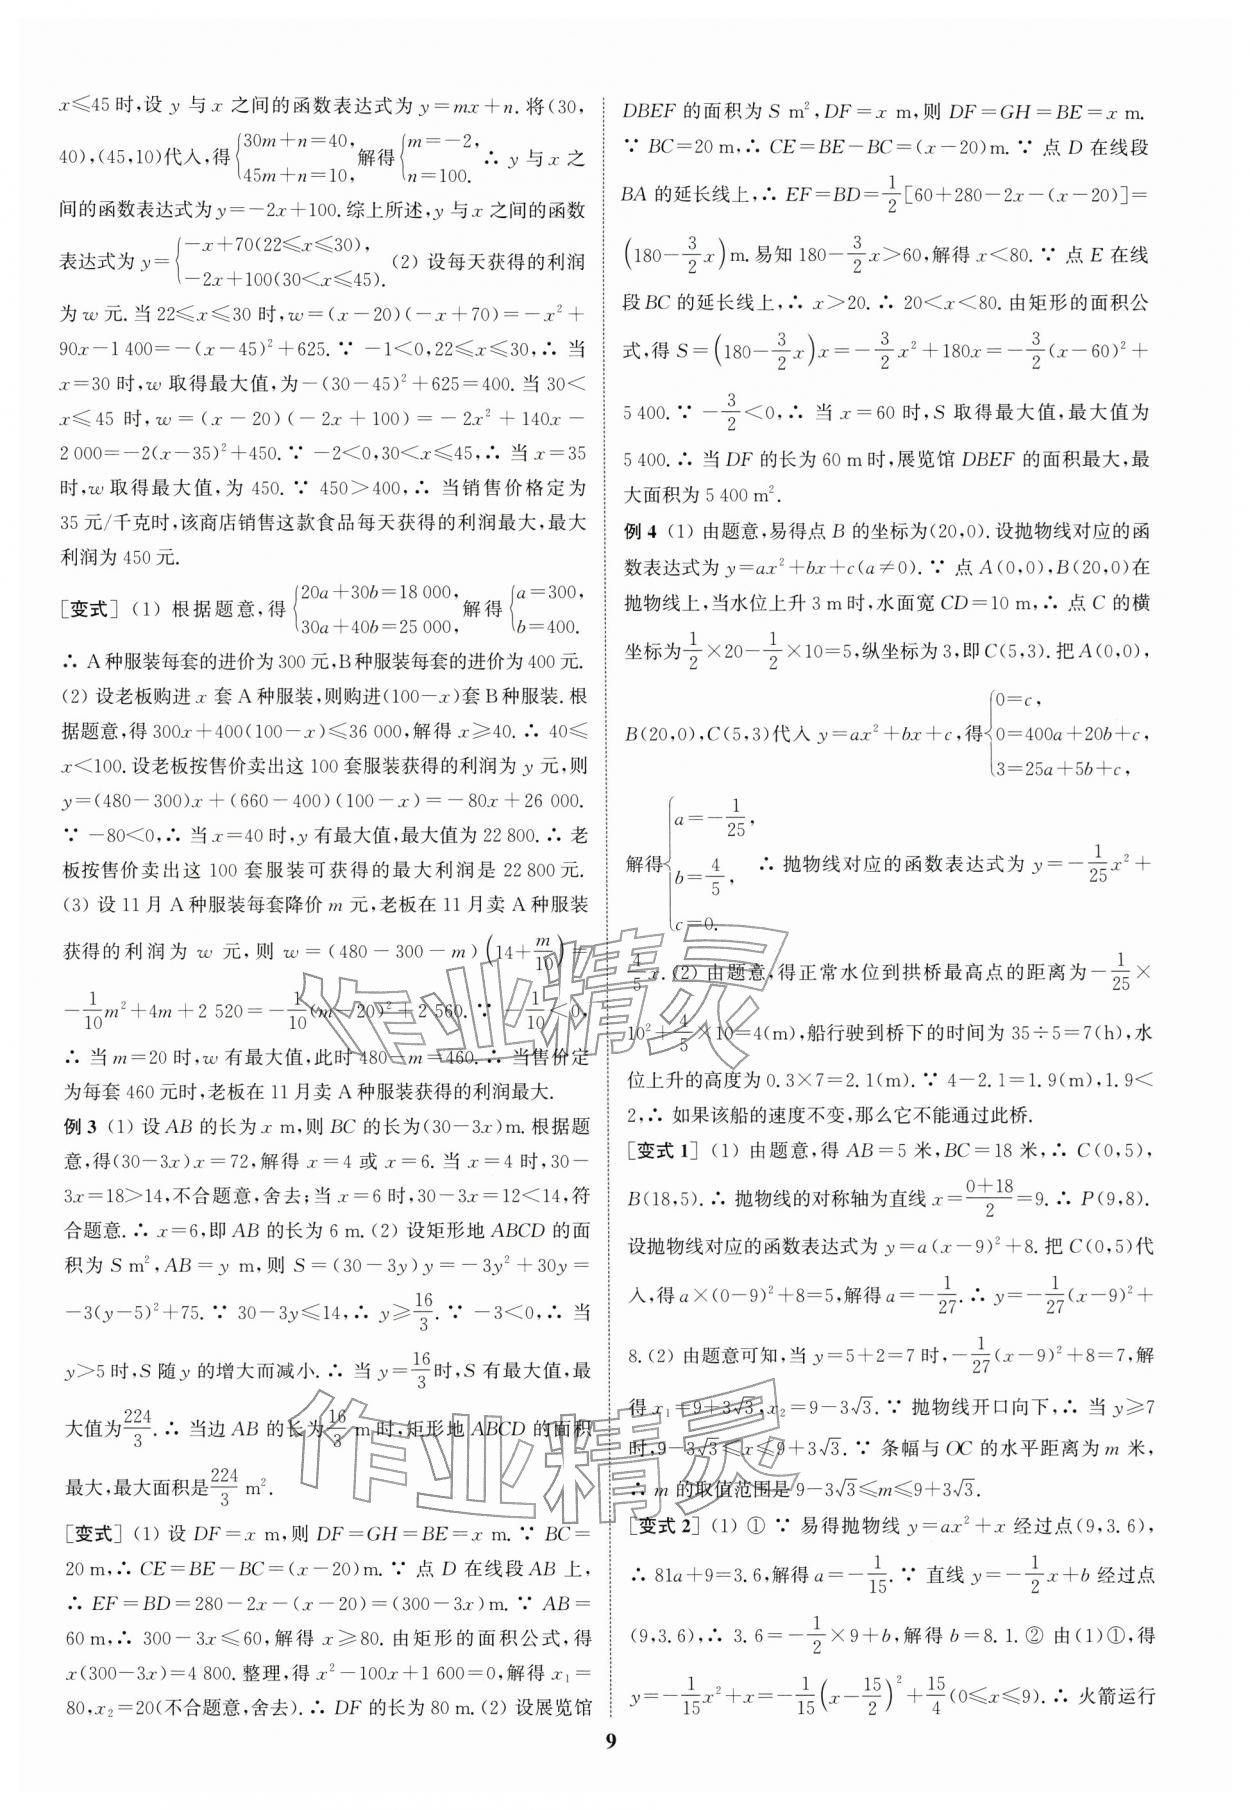 x≤45时,设 y 与 x 之间的函数表达式为 y=mx+n. 将(30,
40),(45,10)代入,得{30m+n=40, 45m+n=10, 解得{m=-2, n=100. ∴ y 与 x 之
间的函数表达式为 y=-2x+100. 综上所述,y 与 x 之间的函数
表达式为 y={-x+70(22≤x≤30), -2x+100(30<x≤45). (2) 设每天获得的利润
为 w 元. 当 22≤x≤30 时,w=(x-20)(-x+70)=-x²+
90x-1 400=-(x-45)²+625. ∵ -1<0,22≤x≤30,∴ 当
x=30 时,w 取得最大值,为-(30-45)²+625=400. 当 30<
x≤45 时,w=(x-20)(-2x+100)=-2x²+140x-
2 000=-2(x-35)²+450. ∵ -2<0,30<x≤45,∴ 当 x=35
时,w 取得最大值,为 450. ∵ 450>400,∴ 当销售价格定为
35 元/千克时,该商店销售这款食品每天获得的利润最大,最大
利润为 450 元.
[变式] (1) 根据题意,得{20a+30b=18 000, 30a+40b=25 000, 解得{a=300, b=400.
∴ A 种服装每套的进价为 300 元,B种服装每套的进价为 400 元.
(2) 设老板购进 x 套 A 种服装,则购进(100-x)套 B种服装. 根
据题意,得 300x+400(100-x)≤36 000,解得 x≥40. ∴ 40≤
x<100. 设老板按售价卖出这 100 套服装获得的利润为 y 元,则
y=(480-300)x+(660-400)(100-x)=-80x+26 000.
∵ -80<0,∴ 当 x=40 时,y 有最大值,最大值为 22 800. ∴ 老
板按售价卖出这 100 套服装可获得的最大利润是 22 800 元.
(3) 设 11 月 A 种服装每套降价 m 元,老板在 11 月卖 A 种服装
获得的利润为 w 元,则 w=(480-300-m)(14+m/10)=
-1/10m²+4m+2 520=-1/10(m-20)²+2 560. ∵ -1/10<0,
∴ 当 m=20 时,w 有最大值,此时 480-m=460. ∴ 当售价定
为每套 460 元时,老板在 11 月卖 A 种服装获得的利润最大.
例 3 (1) 设 AB 的长为 x m,则 BC 的长为(30-3x)m. 根据题
意,得(30-3x)x=72,解得 x=4 或 x=6. 当 x=4 时,30-
3x=18>14,不合题意,舍去;当 x=6 时,30-3x=12<14,符
合题意. ∴ x=6,即 AB 的长为 6 m. (2) 设矩形地 ABCD 的面
积为 S m²,AB=y m,则 S=(30-3y)y=-3y²+30y=
-3(y-5)²+75. ∵ 30-3y≤14,∴ y≥16/3. ∵ -3<0,∴ 当
y>5 时,S 随 y 的增大而减小. ∴ 当 y=16/3时,S 有最大值,最
大值为224/3. ∴ 当边 AB 的长为16/3 m时,矩形地 ABCD 的面积
最大,最大面积是224/3 m².
[变式] (1) 设 DF=x m,则 DF=GH=BE=x m. ∵ BC=
20 m,∴ CE=BE-BC=(x-20)m. ∵ 点 D 在线段 AB 上,
∴ EF=BD=280-2x-(x-20)=(300-3x)m. ∵ AB=
60 m,∴ 300-3x≤60,解得 x≥80. 由矩形的面积公式,得
x(300-3x)=4 800. 整理,得 x²-100x+1 600=0,解得 x₁=
80,x₂=20(不合题意,舍去). ∴ DF 的长为 80 m. (2) 设展览馆
DBEF 的面积为 S m²,DF=x m,则 DF=GH=BE=x m.
∵ BC=20 m,∴ CE=BE-BC=(x-20)m. ∵ 点 D 在线段
BA 的延长线上,∴ EF=BD=1/2[60+280-2x-(x-20)]=
(180-3/2x)m. 易知 180-3/2x>60,解得 x<80. ∵ 点 E 在线
段 BC 的延长线上,∴ x>20. ∴ 20<x<80. 由矩形的面积公
式,得 S=(180-3/2x)x=-3/2x²+180x=-3/2(x-60)²+
5 400. ∵ -3/2<0,∴ 当 x=60 时,S 取得最大值,最大值为
5 400. ∴ 当 DF 的长为 60 m 时,展览馆 DBEF 的面积最大,最
大面积为 5 400 m².
例 4 (1) 由题意,易得点 B 的坐标为(20,0). 设抛物线对应的函
数表达式为 y=ax²+bx+c(a≠0). ∵ 点 A(0,0),B(20,0)在
抛物线上,当水位上升 3 m 时,水面宽 CD=10 m,∴ 点 C 的横
坐标为1/2×20-1/2×10=5,纵坐标为 3,即 C(5,3). 把 A(0,0),
B(20,0),C(5,3)代入 y=ax²+bx+c,得{0=c, 0=400a+20b+c, 3=25a+5b+c,
解得{a=-1/25, b=4/5, c=0. ∴ 抛物线对应的函数表达式为 y=-1/25x²+
4/5x. (2) 由题意,得正常水位到拱桥最高点的距离为-1/25×
10²+4/5×10=4(m),船行驶到桥下的时间为 35÷5=7(h),水
位上升的高度为 0.3×7=2.1(m). ∵ 4-2.1=1.9(m),1.9<
2,∴ 如果该船的速度不变,那么它不能通过此桥.
[变式 1] (1) 由题意,得 AB=5 米,BC=18 米,∴ C(0,5),
B(18,5). ∴ 抛物线的对称轴为直线 x=0+18/2=9. ∴ P(9,8).
设抛物线对应的函数表达式为 y=a(x-9)²+8. 把 C(0,5)代
入,得 a×(0-9)²+8=5,解得 a=-1/27. ∴ y=-1/27(x-9)²+
8. (2) 由题意可知,当 y=5+2=7 时,-1/27(x-9)²+8=7,解
得 x₁=9+3√3,x₂=9-3√3. ∵ 抛物线开口向下,∴ 当 y≥7
时,9-3√3≤x≤9+3√3. ∵ 条幅与 OC 的水平距离为 m 米,
∴ m 的取值范围是 9-3√3≤m≤9+3√3.
[变式 2] (1) ① ∵ 易得抛物线 y=ax²+x 经过点(9,3.6),
∴ 81a+9=3.6,解得 a=-1/15. ∵ 直线 y=-1/2x+b 经过点
(9,3.6),∴ 3.6=-1/2×9+b,解得 b=8.1. ② 由(1)①,得
y=-1/15x²+x=-1/15(x-15/2)²+15/4(0≤x≤9). ∴ 火箭运行
9
作业精灵
作业精灵